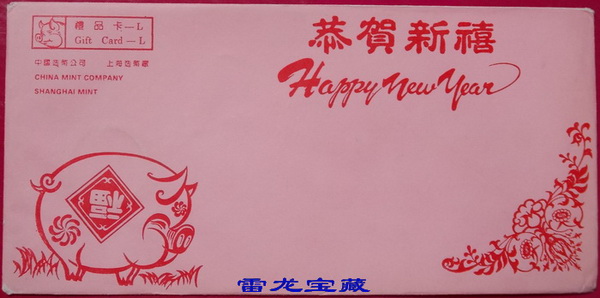 禮品卡—L
Gift Card—L
中國造幣公司 上海造幣廠
CHINA MINT COMPANY
SHANGHAI MINT
恭賀新禧
Happy New Year
福
雷龙宝藏